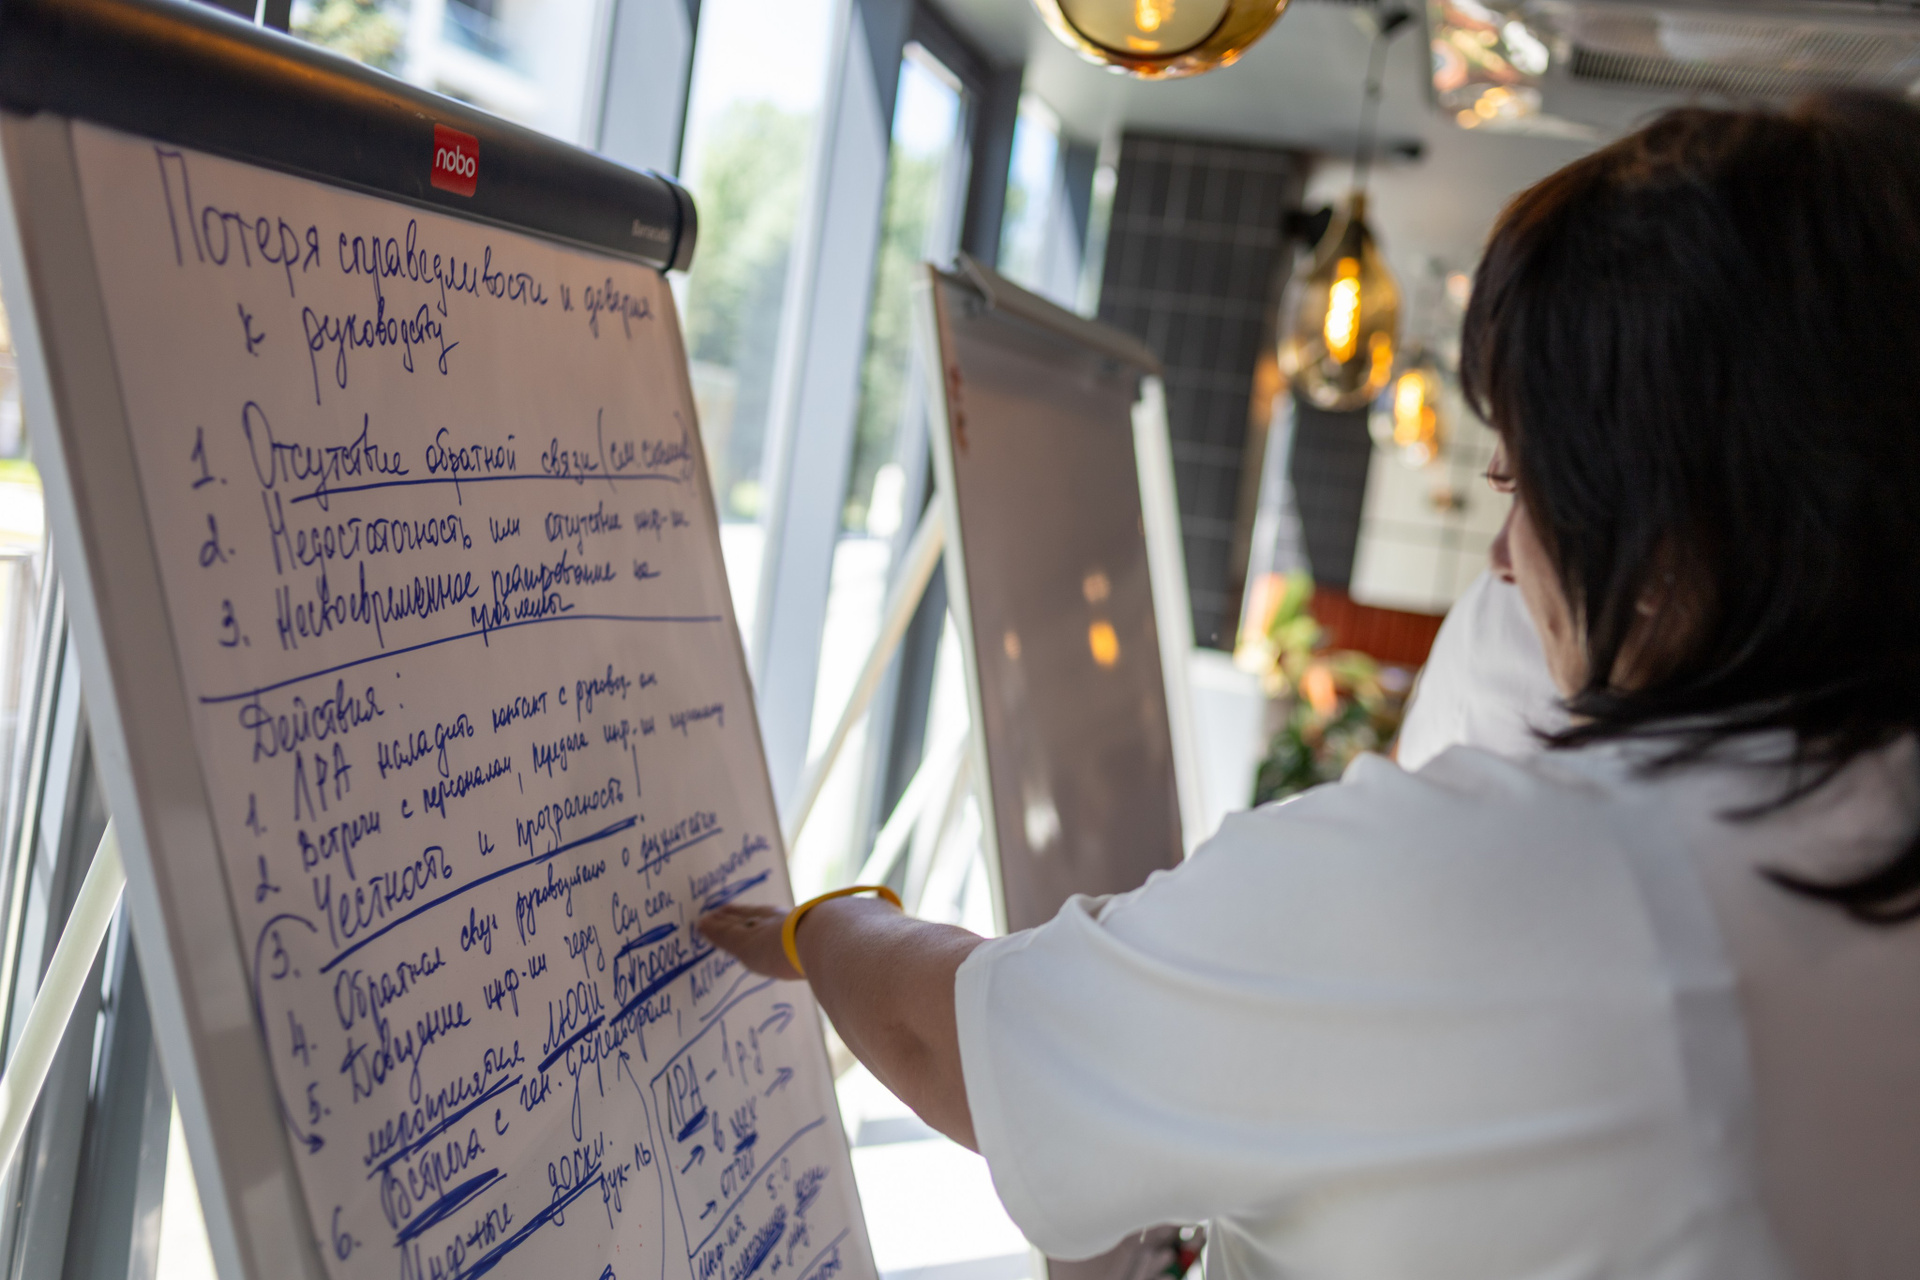 nobo
Потеря справедливости и доверия
к руководству
1. Отсутствие обратной связи (см.
2. Недостаточность или отсутствие инф-ии
3. Несвоевременное реагирование на
проблемы
Действия:
1. ЛРА наладить контакт с руковод-ом
2 Встречи с персоналом, передача инф-ии
Честность и прозрачность!
3. Обратная связь руководителю о
4. Доведение инф-ии через Соц сети,
5. мероприятия люди в
Встреча с ген. директором,
6. Инф-ные доски.
рук-ль
ЛРА - 1 р.
→ в
→ отчет
5:0
инф-ия